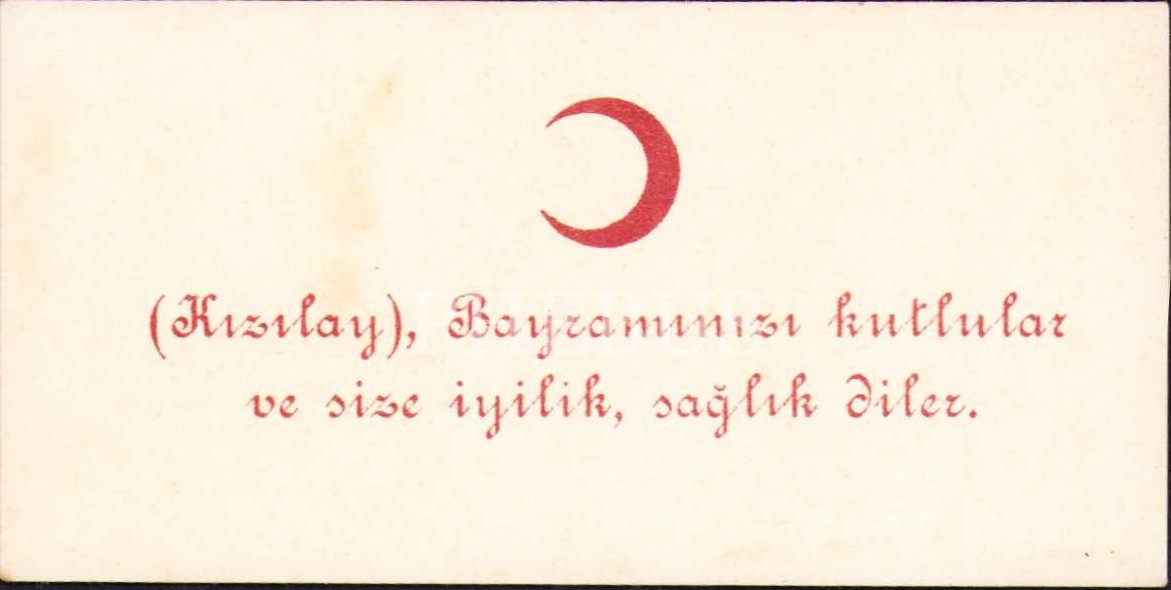 (Kızılay), Bayramınızı kutlular
ve size iyilik, sağlık diler.
PHEBUS